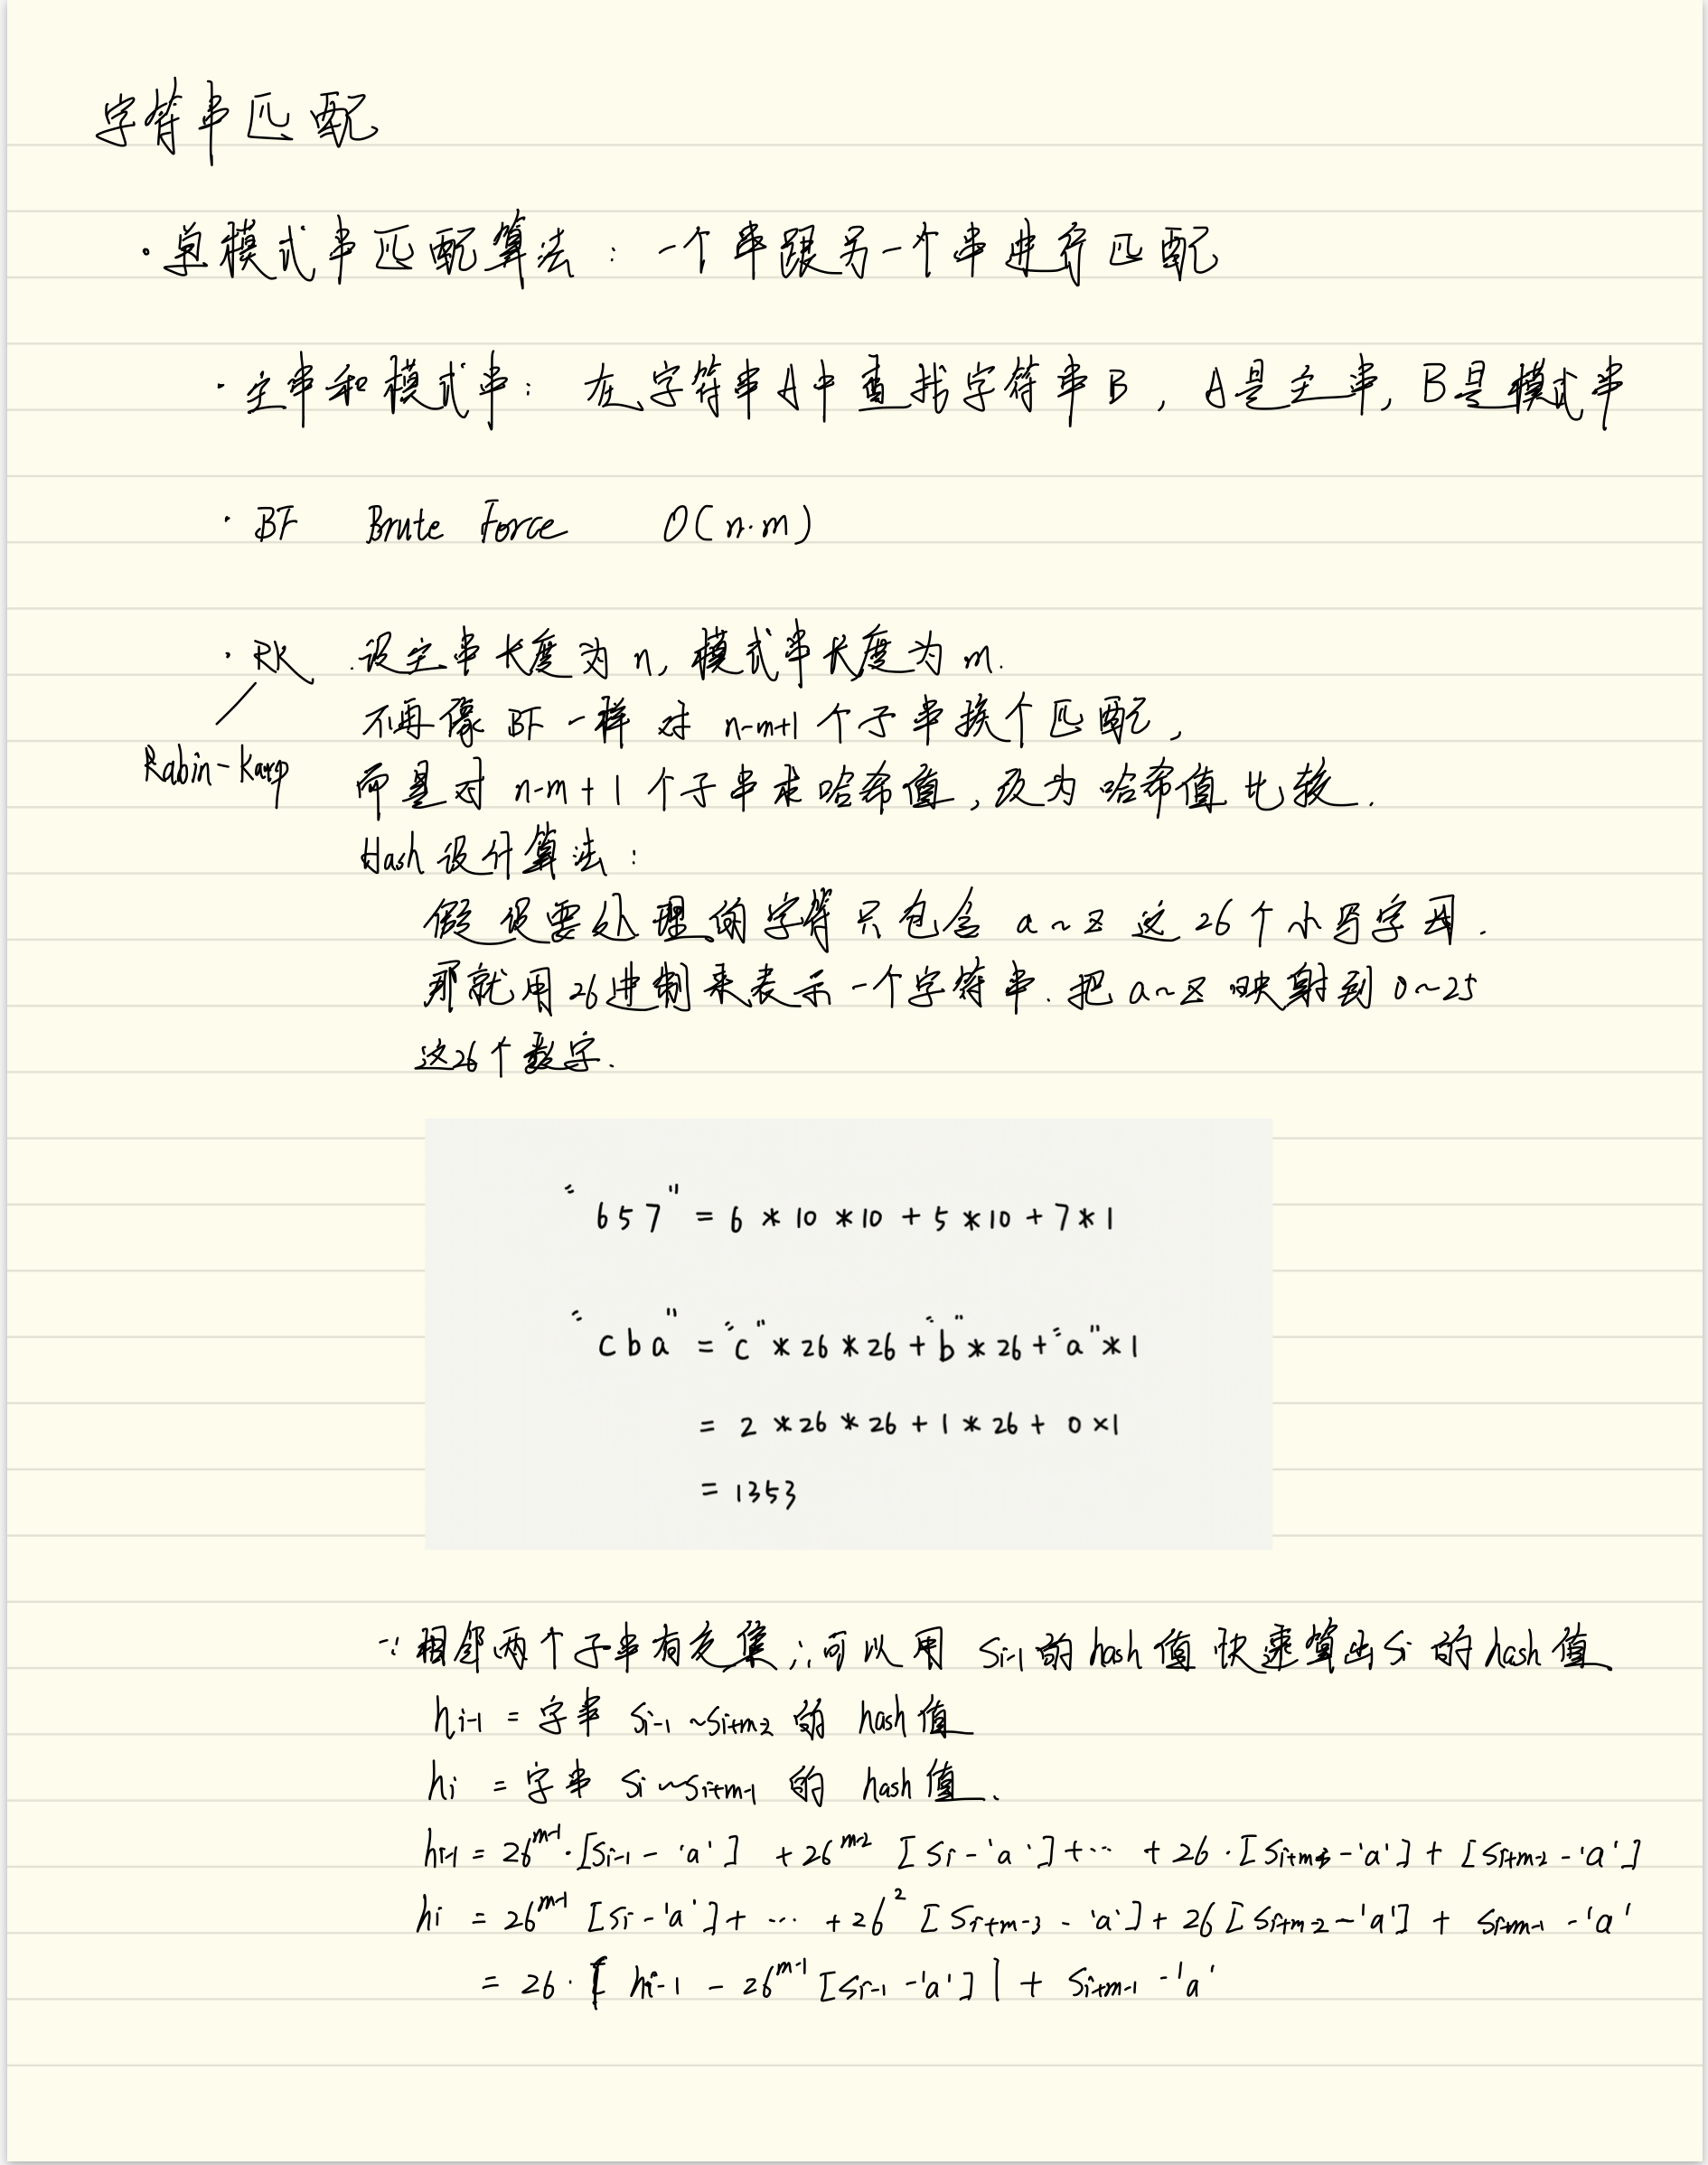 字符串匹配
· 单模式串匹配算法：一个串跟另一个串进行匹配
· 主串和模式串：在字符串A中查找字符串B，A是主串，B是模式串
· BF Brute Force O(n·m)
· RK .设主串长度为n，模式串长度为m.
不再像BF一样对 n-m+1 个子串挨个匹配，
Rabin-Karp
而是对 n-m+1 个子串求哈希值，改为哈希值比较.
Hash设计算法：
假设要处理的字符只包含 a~z 这26个小写字母.
那就用26进制来表示一个字符串.把a~z映射到0~25
这26个数字.
"657" = 6 * 10 * 10 + 5 * 10 + 7 * 1
"cba" = "c" * 26 * 26 + "b" * 26 + "a" * 1
= 2 * 26 * 26 + 1 * 26 + 0 × 1
= 1353
∵相邻两个子串有交集∴可以用 Si-1 的hash值快速算出Si的hash值
hi-1 = 字串 Si-1 ~ Si+m-2 的 hash值
hi = 字串 Si ~ Si+m-1 的 hash值.
hi-1 = 26^m-1 · [Si-1 - 'a'] + 26^m-2 [Si - 'a'] + ··· + 26 · [Si+m-3 - 'a'] + [Si+m-2 - 'a']
hi = 26^m-1 [Si - 'a'] + ··· + 26^2 [Si+m-3 - 'a'] + 26 [Si+m-2 - 'a'] + Si+m-1 - 'a'
= 26 · [ hi-1 - 26^m-1 [Si-1 - 'a'] ] + Si+m-1 - 'a'